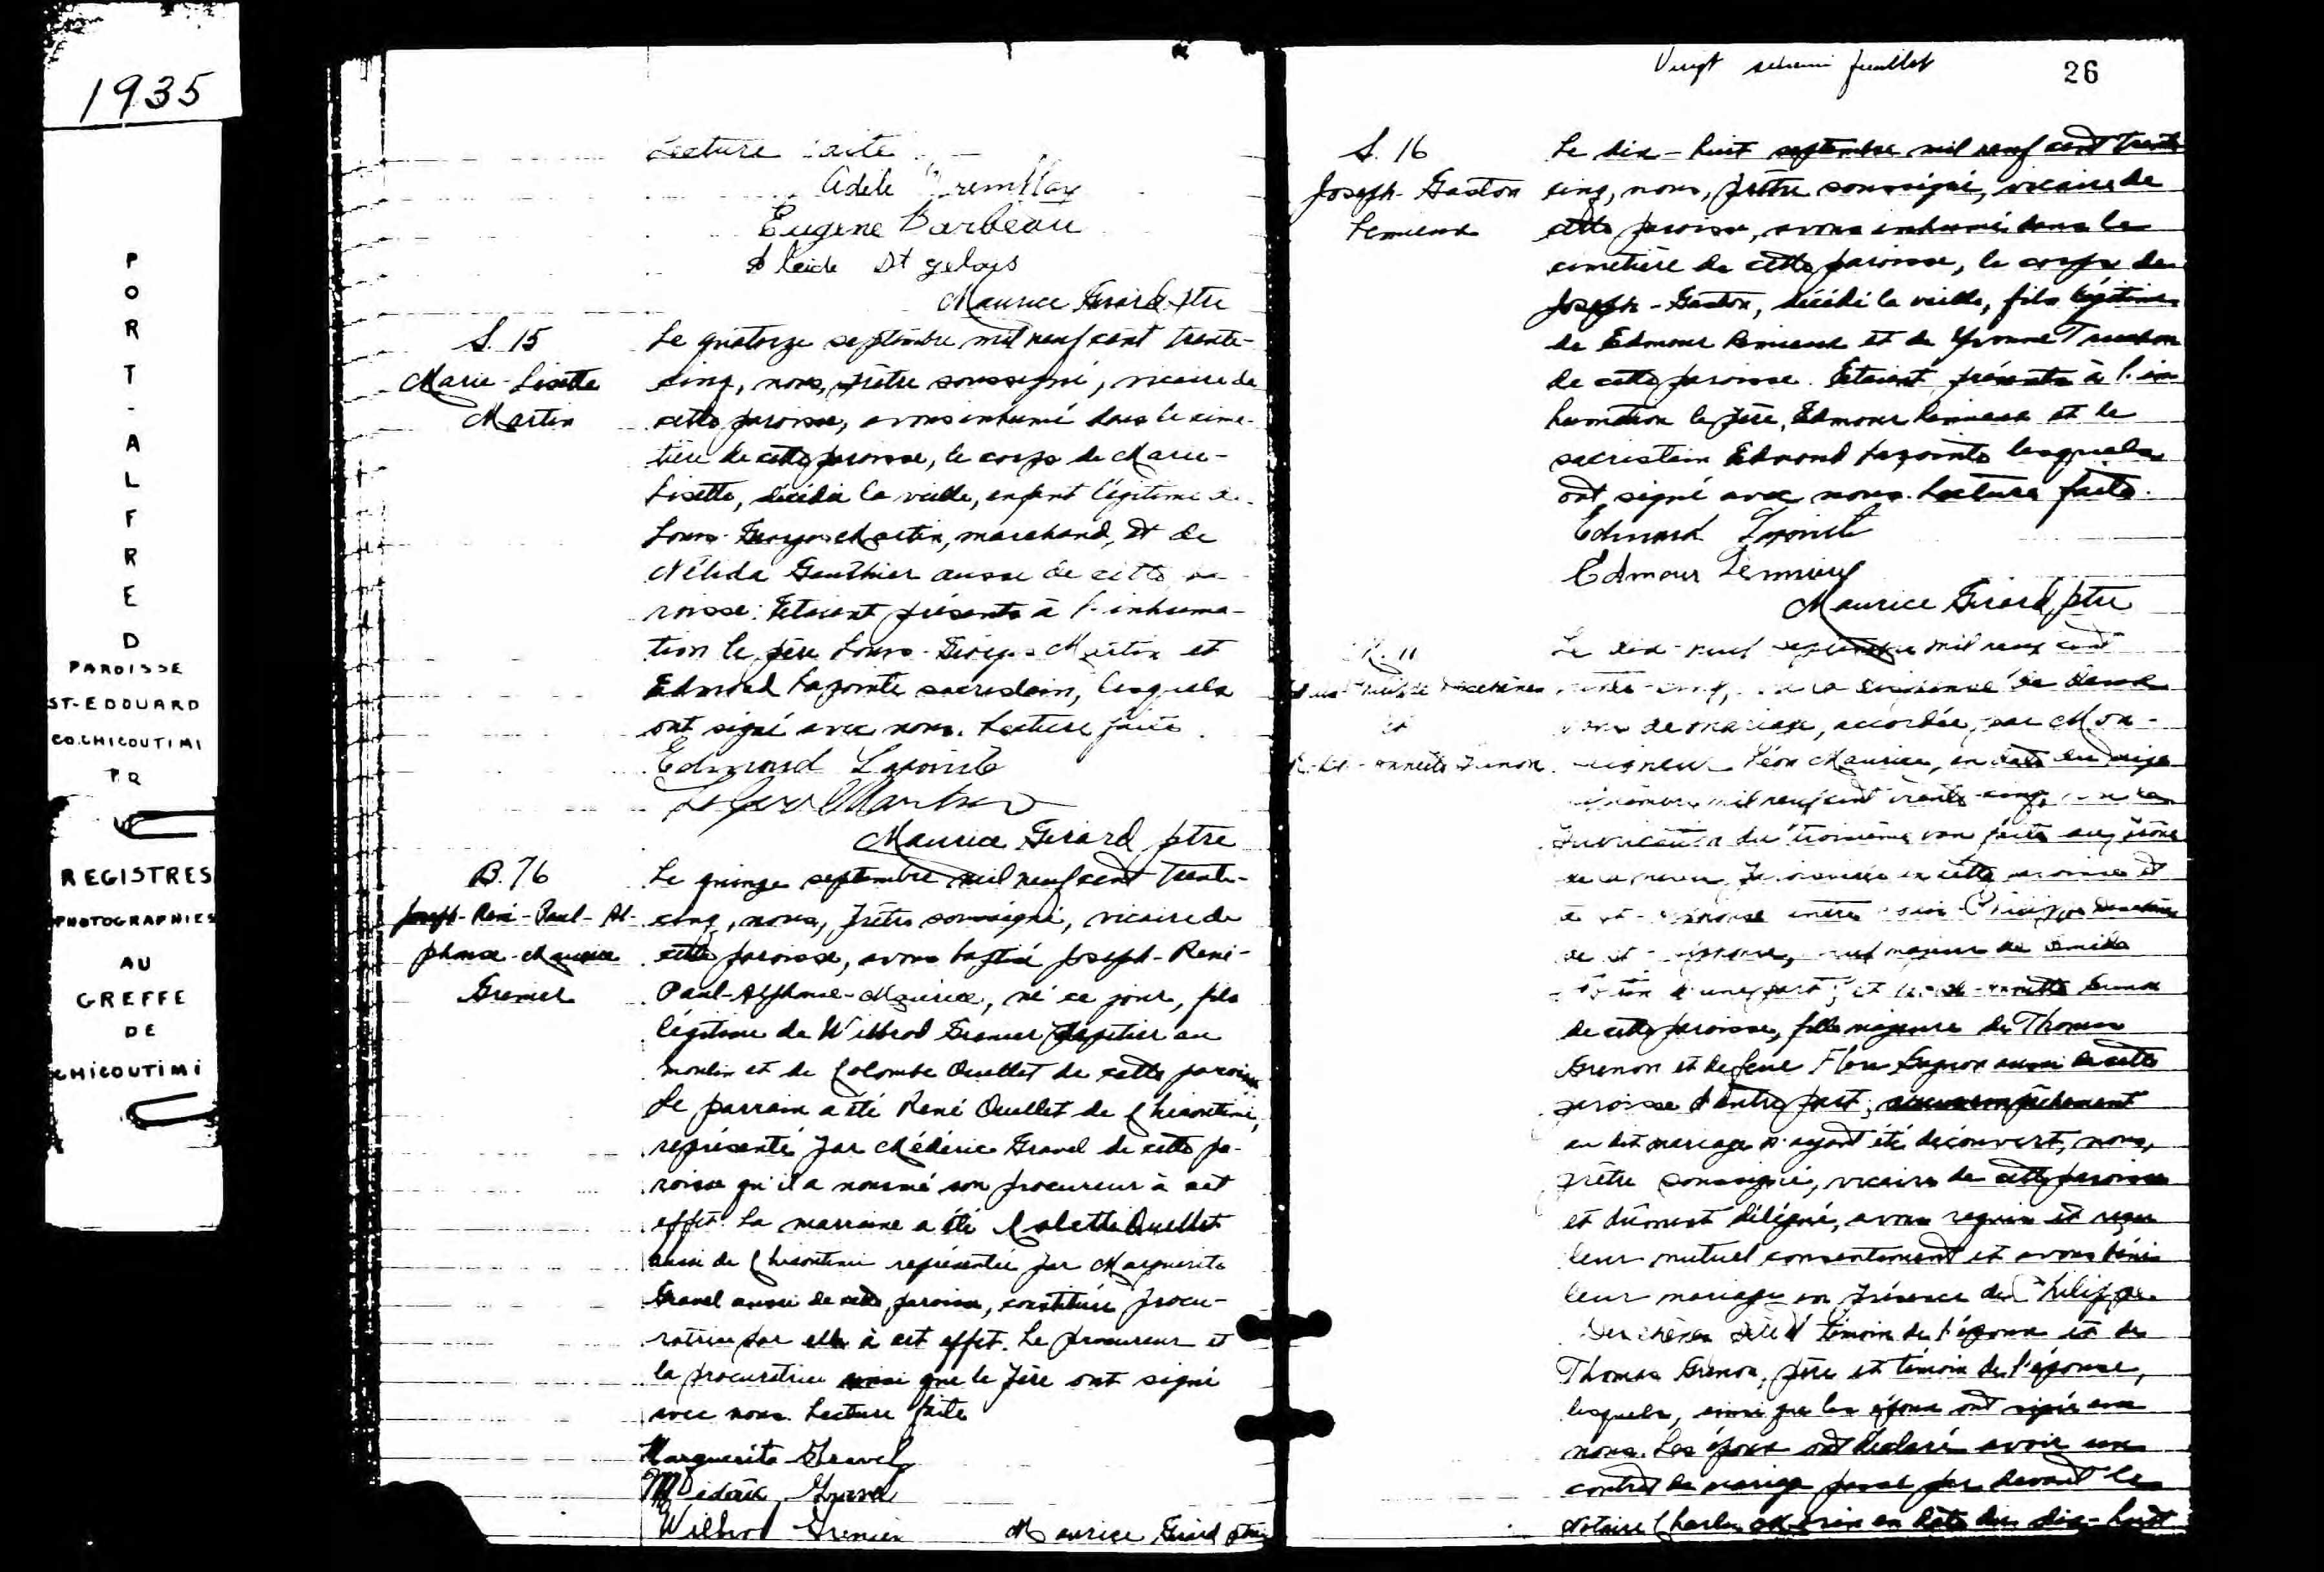 1935
PORT-ALFRED
PAROISSE
ST-EDOUARD
CO.CHICOUTIMI
P Q
REGISTRES
PHOTOGRAPHIES
AU
GREFFE
DE
CHICOUTIMI
Lecture faite
Adèle Tremblay
Eugène Barbeau
St gelais
Maurice Girard ptre
S. 15
Marie-Lisette
Martin
Le quatorze septembre mil neuf cent trente-
cinq, nous, prêtre soussigné, vicaire de
cette paroisse, avons inhumé dans le cime-
tière de cette paroisse, le corps de Marie-
Lisette, décédée la veille, enfant légitime de
Louis-Georges Martin, marchand, et de
Gauthier aussi de cette pa-
roisse. Etaient présents à l'inhuma-
tion le père Louis-Georges Martin et
Edmond Lapointe sacristain, lesquels
ont signé avec nous. Lecture faite.
Edmond Lapointe
Martin
Maurice Girard, ptre
B. 76
Joseph-René-Paul-Al-
phonse-Maurice
Grenier
Le quinze septembre mil neuf cent trente-
cinq, nous, prêtre soussigné, vicaire de
cette paroisse, avons baptisé Joseph-René-
Paul-Alphonse-Maurice, né ce jour, fils
légitime de Wilbrod Grenier papetier au
moulin et de Colombe Ouellet de cette paroisse
Le parrain a été René Ouellet de Chicoutimi,
représenté par Médéric Gravel de cette pa-
roisse qu'il a nommé son procureur à cet
effet. La marraine a été Colette Ouellet
aussi de Chicoutimi représentée par Marguerite
Gravel aussi de cette paroisse, constituée procu-
ratrice par elle à cet effet. Le procureur et
la procuratrice ainsi que le père ont signé
avec nous. Lecture faite
Marguerite Gravel
Médéric Gravel
Wilbrod Grenier Maurice Girard ptre
Vingt sixième feuillet
26
S. 16
Joseph-Gaston
Lemieux
Le dix-huit septembre mil neuf cent trente
cinq, nous, prêtre soussigné, vicaire de
cette paroisse, avons inhumé dans le
cimetière de cette paroisse, le corps de
Joseph-Gaston, décédé la veille, fils légitime
de Edmour Lemieux et de Yvonne Truchon
de cette paroisse. Etaient présents à l'in
humation le père, Edmour Lemieux et le
sacristain Edmond Lapointe lesquels
ont signé avec nous. Lecture faite.
Edmond Lapointe
Edmour Lemieux
Maurice Girard, ptre
M. 11
Deschênes
et
Grenon
Le dix-neuf septembre mil neuf cent
trente-cinq, vu la dispense de deux
bans de mariage, accordée par Mon-
seigneur Léon Maurice, en date du
mil neuf cent trente-cinq, vu la
publication du troisième ban faite au prône
de la messe paroissiale en cette paroisse et
à St-Alphonse entre Philippe Deschênes
de St-Alphonse, fils majeur de
d'une part; et Grenon
de cette paroisse, fille majeure de Thomas
Grenon et de feue Flore Gagnon aussi de cette
paroisse d'autre part; aucun empêchement
au dit mariage n'ayant été découvert, nous,
prêtre soussigné, vicaire de cette paroisse
et dûment délégué, avons requis et reçu
leur mutuel consentement et avons béni
leur mariage en présence de Philippe
Deschênes témoin de l'époux et de
Thomas Grenon, père et témoin de l'épouse,
lesquels, ainsi que les époux ont signé avec
nous. Les époux ont déclaré avoir un
contrat de mariage passé par devant le
notaire Charles en date du dix-huit